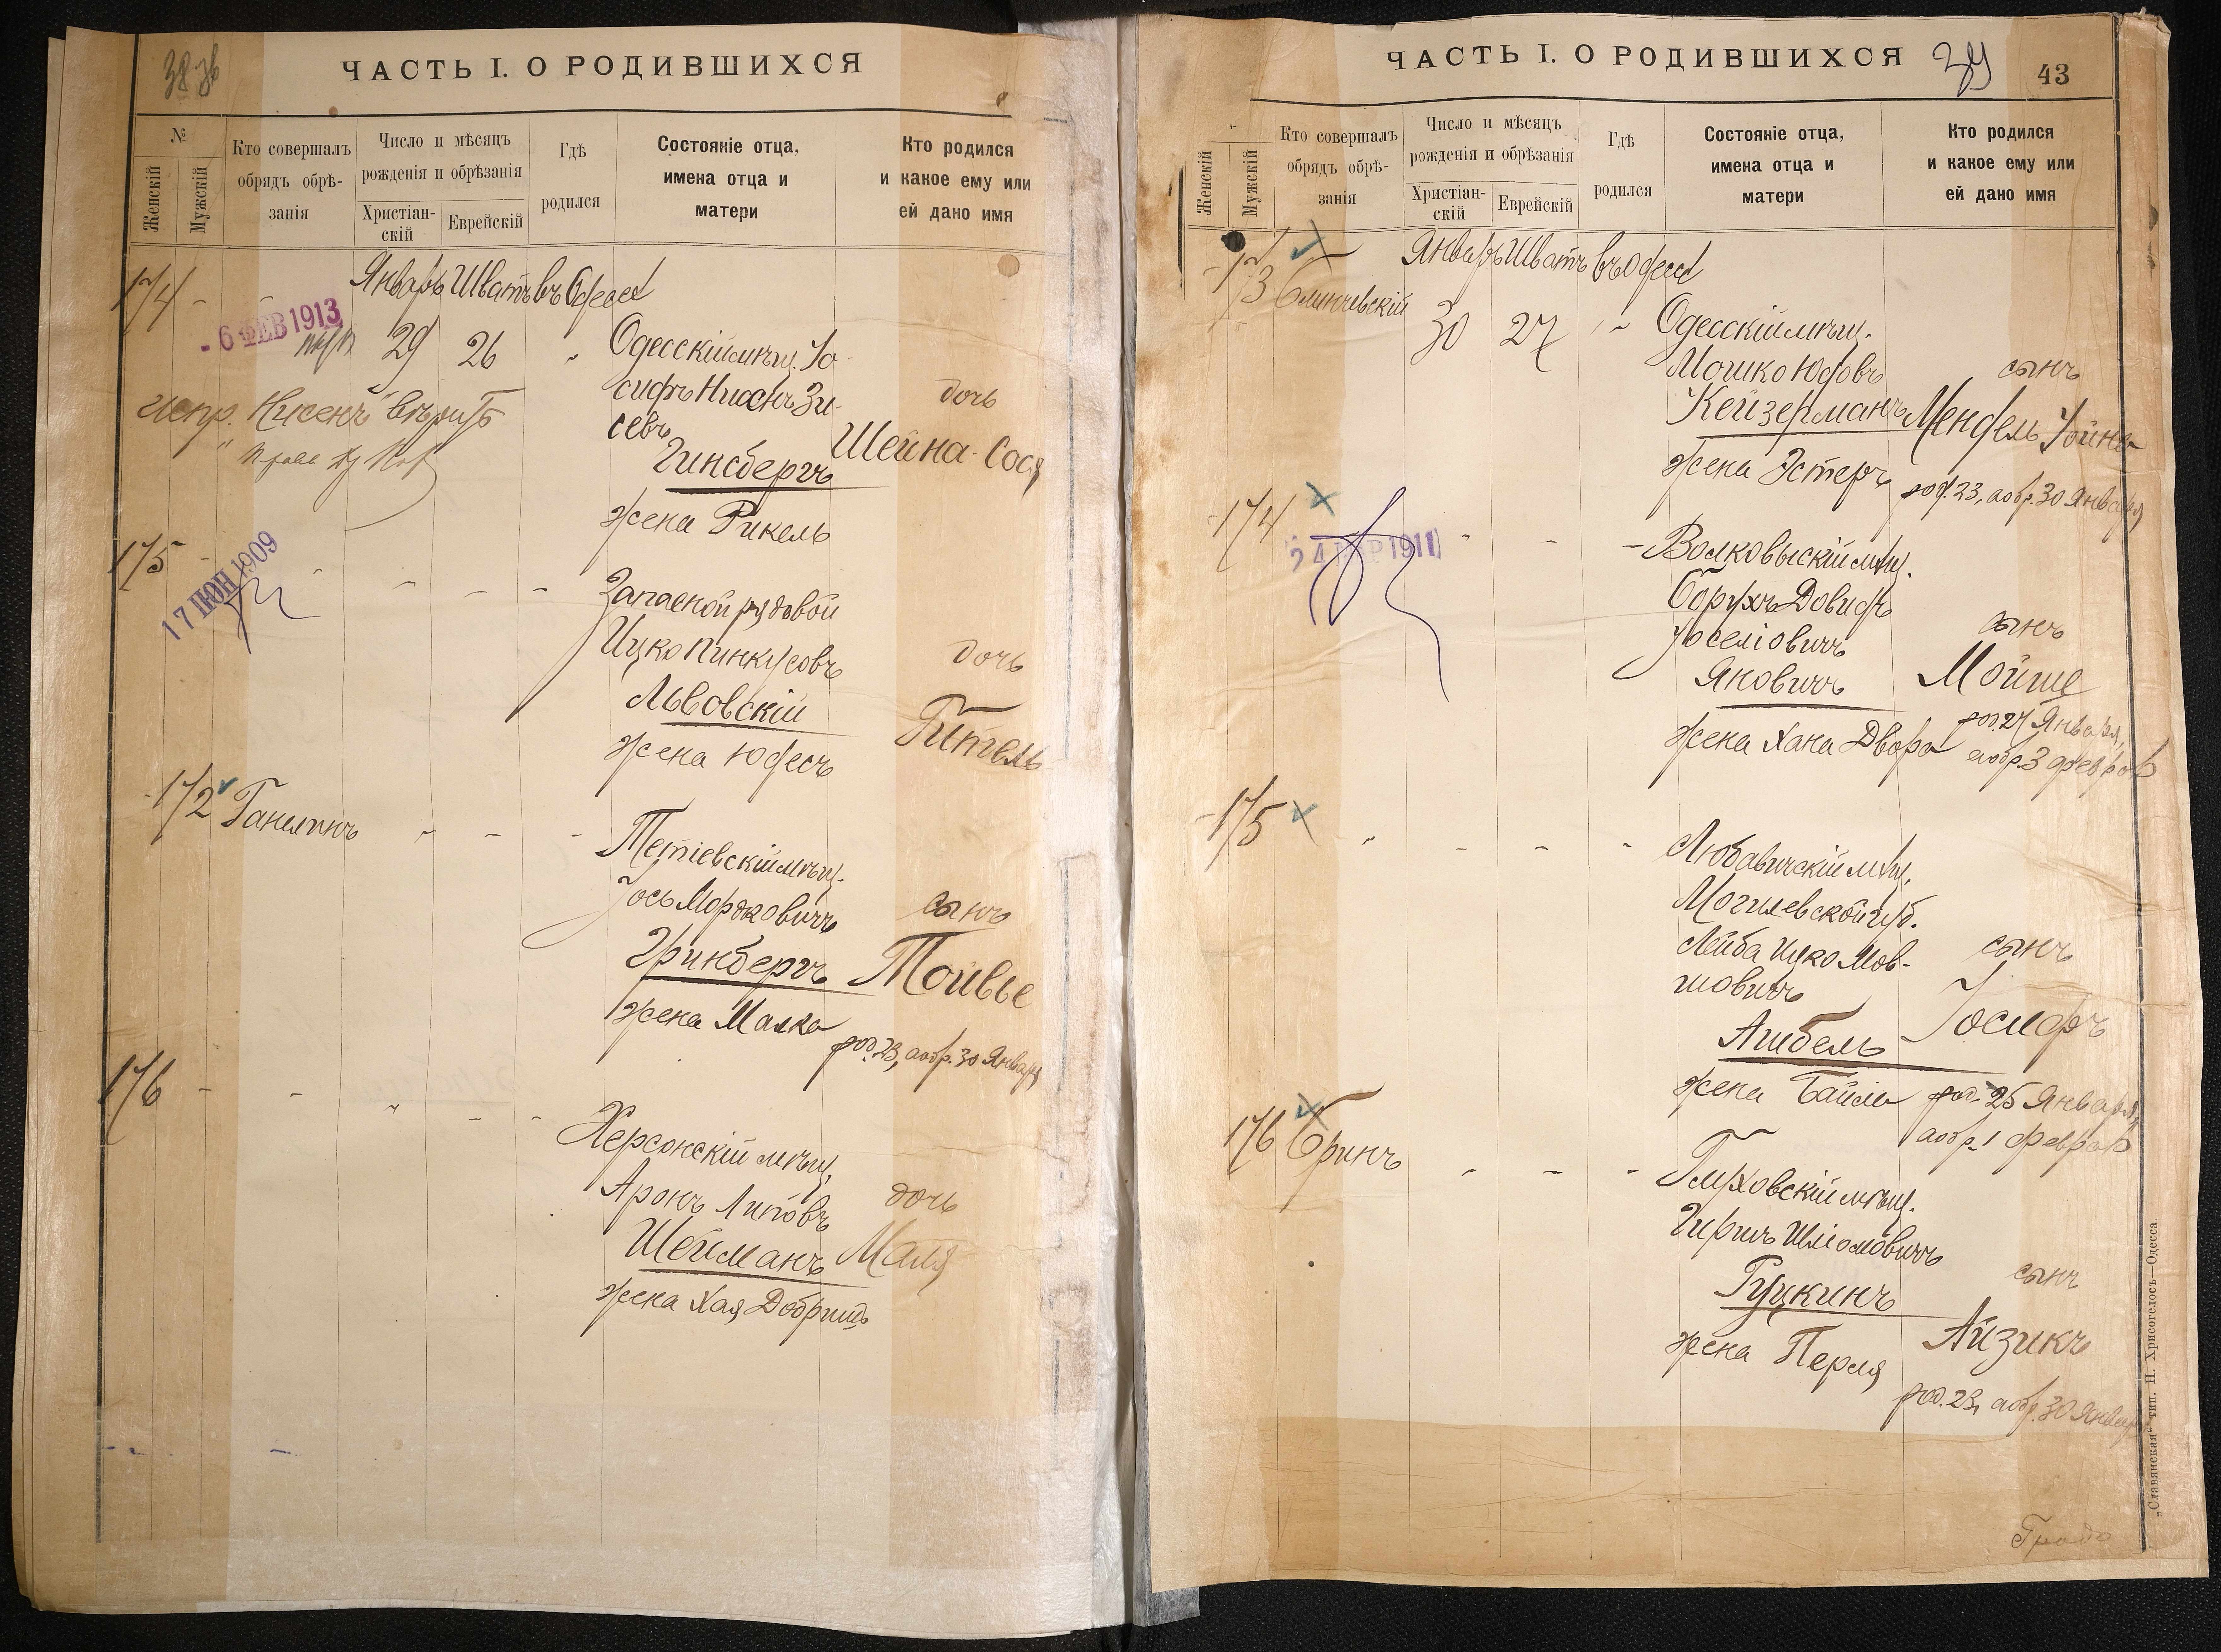 ЧАСТЬ I. О РОДИВШИХСЯ
№
Женскій
Мужскій
Кто совершалъ
обрядъ обрѣ-
занія
Число и мѣсяцъ
рожденія и обрѣзанія
Христіан-
скій
Еврейскій
Гдѣ
родился
Состояніе отца,
имена отца и
матери
Кто родился
и какое ему или
ей дано имя
174
Январь Шватъ въ Одессѣ
- 6 ФЕВ 1913
29 26
Одесскій мѣщ. Іо-
сифъ Ниссонъ Зи-
севъ
Гинсбергъ
жена Рикель
дочь
Шейна-Сося
испр. „Нисенъ" вѣрить
175
17 ІЮН 1909
Запасной рядовой
Ицко Пинкусовъ
Львовскій
жена Юдесъ
дочь
Гитель
172 Ганелинъ
Тетіевскій мѣщ.
Іось Мордковичъ
Гринбергъ
жена Малка
сынъ
Тойвье
род. 23, а обр. 30 Января
176
Херсонскій мѣщ.
Аронъ Липовъ
Шейманъ
жена Хая Добришъ
дочь
Маля
ЧАСТЬ I. О РОДИВШИХСЯ
39
43
Женскій
Мужскій
Кто совершалъ
обрядъ обрѣ-
занія
Число и мѣсяцъ
рожденія и обрѣзанія
Христіан-
скій
Еврейскій
Гдѣ
родился
Состояніе отца,
имена отца и
матери
Кто родился
и какое ему или
ей дано имя
173
Январь Шватъ въ Одессѣ
30 27
Одесскій мѣщ.
Мошко Юдовъ
Кейзерманъ
жена Эстеръ
сынъ
Мендель Іойна
род. 23, а обр. 30 Января
174
1911
Волковыскій мѣщ.
Борухъ Довидъ
Іоселіовичъ
Яновичъ
жена Хана Двора
сынъ
Мойше
род. 27 Января,
а обр. 3 феврал
175
Любавичскій мѣщ.
Могилевской губ.
Лейба Ицко Мов-
шовичъ
Ашбель
жена Бейля
сынъ
Іосифъ
род. 25 Января,
а обр. 1 феврал
176 Бринъ
Глуховскій мѣщ.
Гиршъ Шліомовичъ
Гуцкинъ
жена Перля
сынъ
Айзикъ
род. 23, а обр. 30 Января
„Славянская" тип. Н. Хрисогелосъ—Одесса.